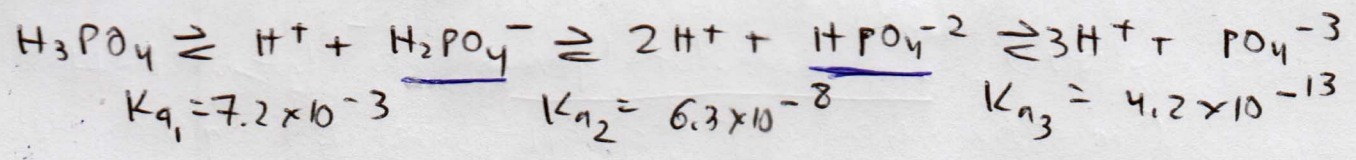 H₃PO₄ ⇌ H⁺ + H₂PO₄⁻ ⇌ 2H⁺ + HPO₄⁻² ⇌ 3H⁺ + PO₄⁻³
Ka₁ = 7.2 × 10⁻³ Ka₂ = 6.3 × 10⁻⁸ Ka₃ = 4.2 × 10⁻¹³